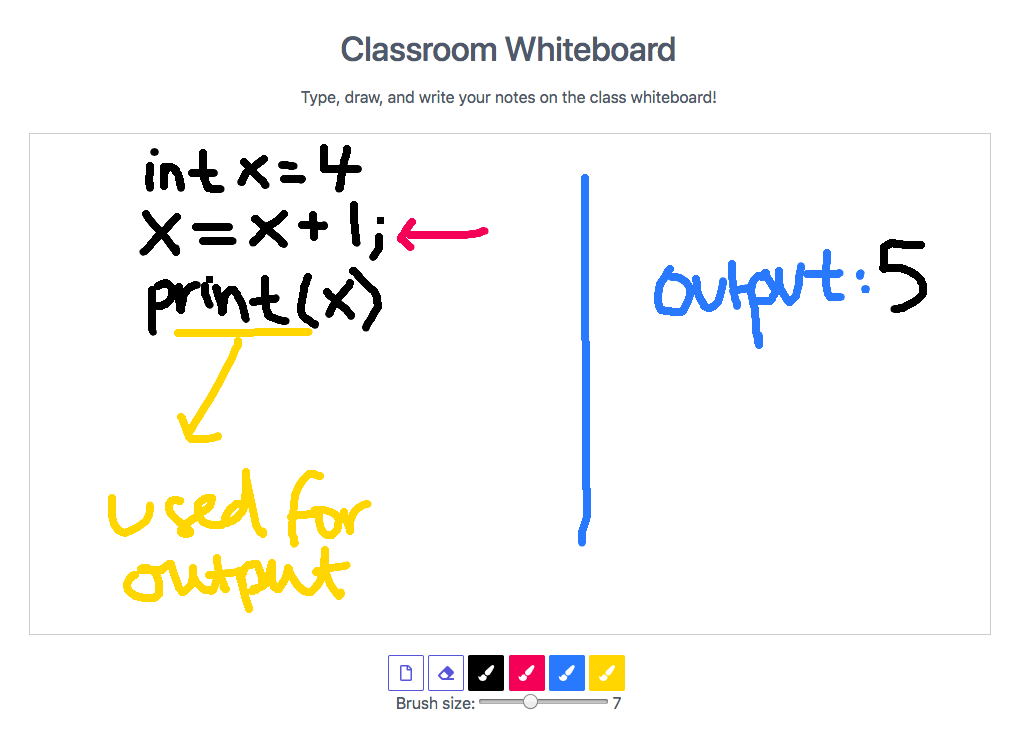 Classroom Whiteboard
Type, draw, and write your notes on the class whiteboard!
int x=4
x=x+1;
print(x)
used for
output
output:5
Brush size: 7